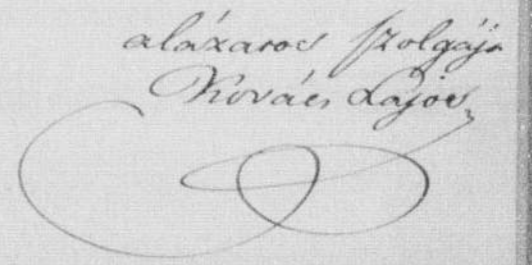 alázatos szolgája
Kovács Lajos